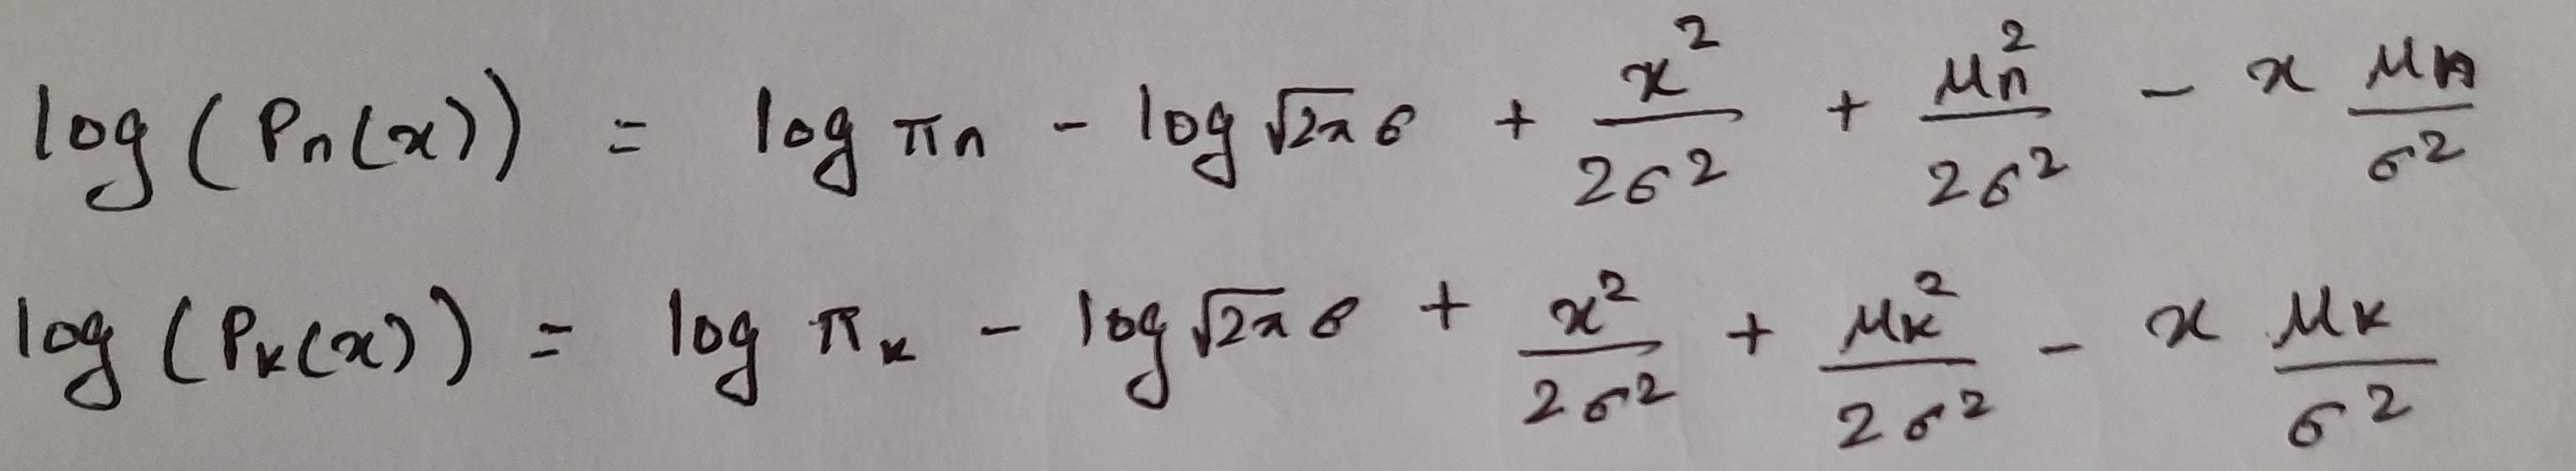 log (Pn(x)) = log πn - log √2π σ + x²/2σ² + μn²/2σ² - x μn/σ²
log (Pk(x)) = log πk - log √2π σ + x²/2σ² + μk²/2σ² - x μk/σ²